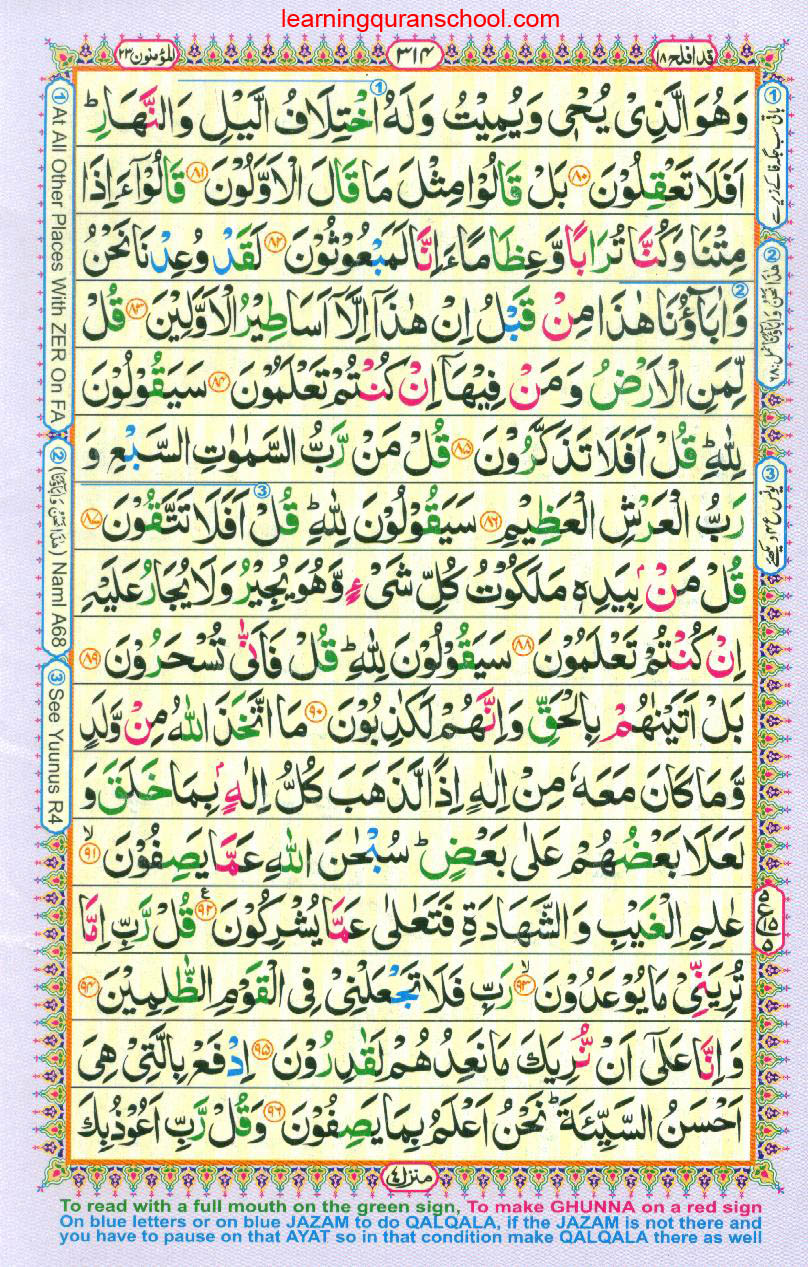 learningquranschool.com
المؤمنون ٢٣
٣١٤
قد افلح ١٨
وَهُوَ الَّذِیْ یُحْیٖ وَیُمِیْتُ وَلَهُ اخْتِلَافُ الَّیْلِ وَالنَّهَارِ ؕ
اَفَلَا تَعْقِلُوْنَ ﴿۸۰﴾ بَلْ قَالُوْا مِثْلَ مَا قَالَ الْاَوَّلُوْنَ ﴿۸۱﴾ قَالُوْۤا ءَاِذَا
مِتْنَا وَكُنَّا تُرَابًا وَّعِظَامًا ءَاِنَّا لَمَبْعُوْثُوْنَ ﴿۸۲﴾ لَقَدْ وُعِدْنَا نَحْنُ
وَاٰبَآؤُنَا هٰذَا مِنْ قَبْلُ اِنْ هٰذَاۤ اِلَّاۤ اَسَاطِیْرُ الْاَوَّلِیْنَ ﴿۸۳﴾ قُلْ
لِّمَنِ الْاَرْضُ وَمَنْ فِیْهَاۤ اِنْ كُنْتُمْ تَعْلَمُوْنَ ﴿۸۴﴾ سَیَقُوْلُوْنَ
لِلّٰهِ ؕ قُلْ اَفَلَا تَذَكَّرُوْنَ ﴿۸۵﴾ قُلْ مَنْ رَّبُّ السَّمٰوٰتِ السَّبْعِ وَ
رَبُّ الْعَرْشِ الْعَظِیْمِ ﴿۸۶﴾ سَیَقُوْلُوْنَ لِلّٰهِ ؕ قُلْ اَفَلَا تَتَّقُوْنَ ﴿۸۷﴾
قُلْ مَنْۢ بِیَدِهٖ مَلَكُوْتُ كُلِّ شَیْءٍ وَّهُوَ یُجِیْرُ وَلَا یُجَارُ عَلَیْهِ
اِنْ كُنْتُمْ تَعْلَمُوْنَ ﴿۸۸﴾ سَیَقُوْلُوْنَ لِلّٰهِ ؕ قُلْ فَاَنّٰی تُسْحَرُوْنَ ﴿۸۹﴾
بَلْ اَتَیْنٰهُمْ بِالْحَقِّ وَاِنَّهُمْ لَكٰذِبُوْنَ ﴿۹۰﴾ مَا اتَّخَذَ اللّٰهُ مِنْ وَّلَدٍ
وَّمَا كَانَ مَعَهٗ مِنْ اِلٰهٍ اِذًا لَّذَهَبَ كُلُّ اِلٰهٍۭ بِمَا خَلَقَ وَ
لَعَلَا بَعْضُهُمْ عَلٰی بَعْضٍ ؕ سُبْحٰنَ اللّٰهِ عَمَّا یَصِفُوْنَ ﴿۹۱﴾ ۙ
عٰلِمِ الْغَیْبِ وَالشَّهَادَةِ فَتَعٰلٰی عَمَّا یُشْرِكُوْنَ ﴿۹۲﴾ ع قُلْ رَّبِّ اِمَّا
تُرِیَنِّیْ مَا یُوْعَدُوْنَ ﴿۹۳﴾ ۙ رَبِّ فَلَا تَجْعَلْنِیْ فِی الْقَوْمِ الظّٰلِمِیْنَ ﴿۹۴﴾
وَاِنَّا عَلٰۤی اَنْ نُّرِیَكَ مَا نَعِدُهُمْ لَقٰدِرُوْنَ ﴿۹۵﴾ اِدْفَعْ بِالَّتِیْ هِیَ
اَحْسَنُ السَّیِّئَةَ ؕ نَحْنُ اَعْلَمُ بِمَا یَصِفُوْنَ ﴿۹۶﴾ وَقُلْ رَّبِّ اَعُوْذُ بِكَ
① At All Other Places With ZER On FA
② (هٰذَا نَحْنُ وَاٰبَآؤُنَا) Naml A68
③ See Yuunus R4
منزل ٤
To read with a full mouth on the green sign, To make GHUNNA on a red sign
On blue letters or on blue JAZAM to do QALQALA, if the JAZAM is not there and
you have to pause on that AYAT so in that condition make QALQALA there as well